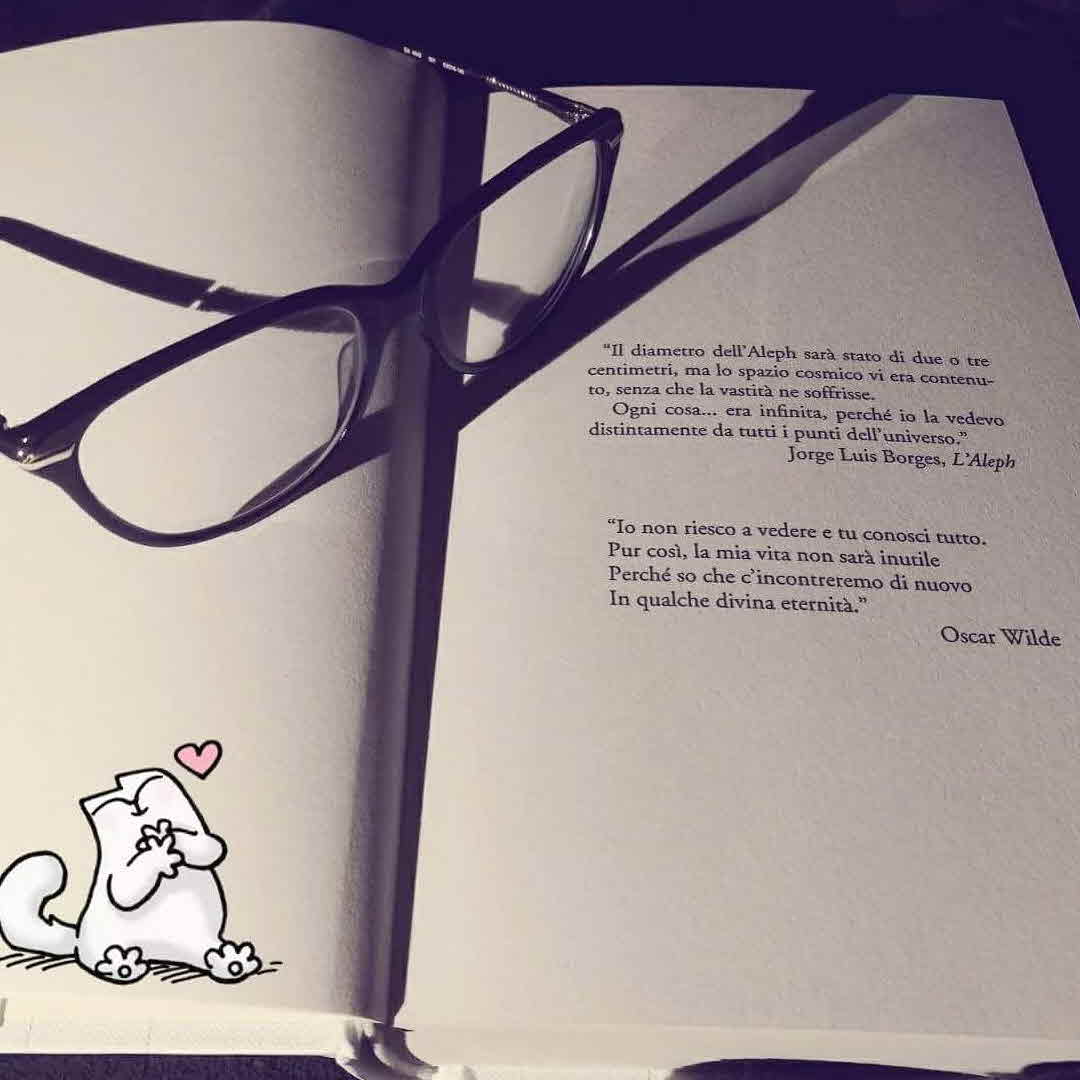 “Il diametro dell’Aleph sarà stato di due o tre
centimetri, ma lo spazio cosmico vi era contenu-
to, senza che la vastità ne soffrisse.
Ogni cosa... era infinita, perché io la vedevo
distintamente da tutti i punti dell’universo.”
Jorge Luis Borges, L’Aleph
“Io non riesco a vedere e tu conosci tutto.
Pur così, la mia vita non sarà inutile
Perché so che c’incontreremo di nuovo
In qualche divina eternità.”
Oscar Wilde